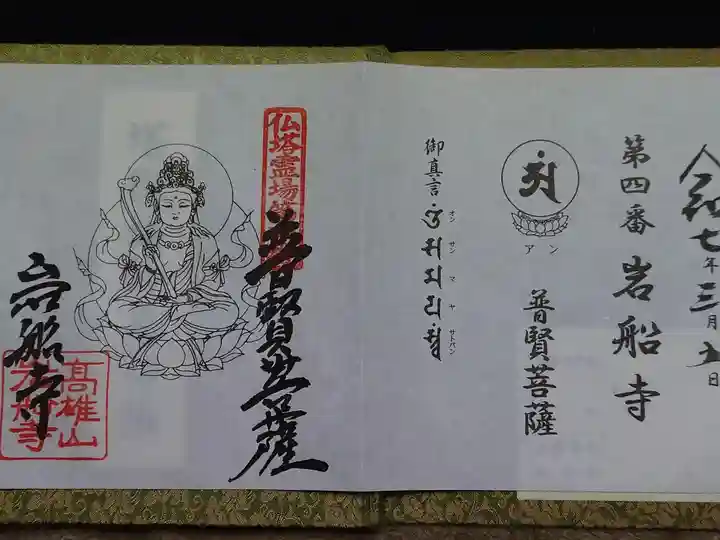 令和七年三月五日
第四番 岩船寺
アン
普賢菩薩
御真言
オン サン マ ヤ サトバン
仏塔霊場第
普賢菩薩
岩船寺
高雄山
岩船寺